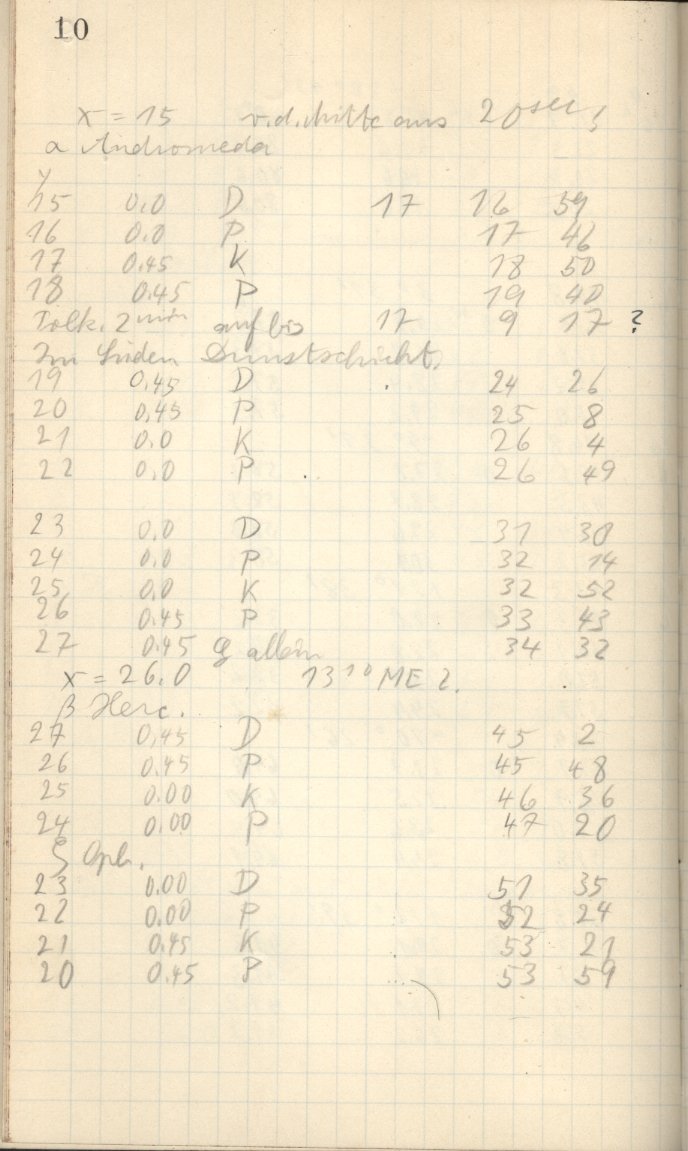 10
x = 15 v. d. Mitte aus 20 sec
α Andromeda
y
15 0.0 D 17 16 59
16 0.0 P 17 46
17 0.45 K 18 50
18 0.45 P 19 40
2 min auf bis 17 9 17 ?
Im Süden Dunstschicht.
19 0.45 D 24 26
20 0.45 P 25 8
21 0.0 K 26 4
22 0.0 P 26 49
23 0.0 D 31 30
24 0.0 P 32 14
25 0.0 K 32 52
26 0.45 P 33 43
27 0.45 allein 34 32
x = 26.0 13 10 ME
β Herc.
27 0.45 D 45 2
26 0.45 P 45 48
25 0.00 K 46 36
24 0.00 P 47 20
Oph.
23 0.00 D 51 35
22 0.00 P 52 24
21 0.45 K 53 21
20 0.45 P 53 59